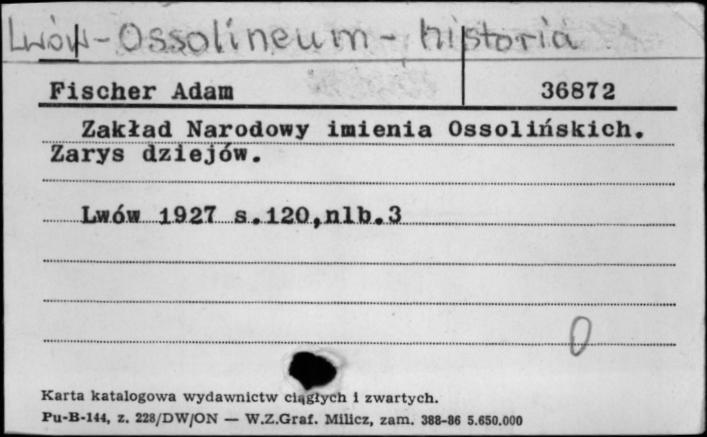 Lwów - Ossolineum - historia
Fischer Adam 36872
Zakład Narodowy imienia Ossolińskich.
Zarys dziejów.
Lwów 1927 s.120,nlb.3
0
Karta katalogowa wydawnictw ciągłych i zwartych.
Pu-B-144, z. 228/DW/ON — W.Z.Graf. Milicz, zam. 388-86 5.650.000